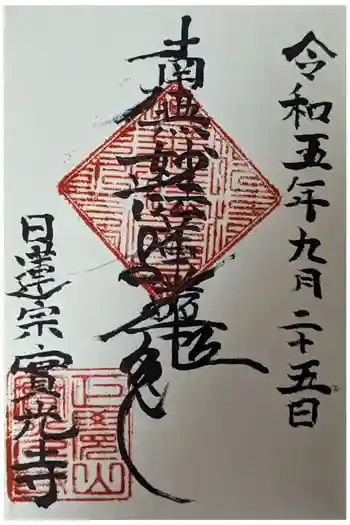 令和五年九月二十五日
南無妙法蓮華経
日蓮宗 實光寺